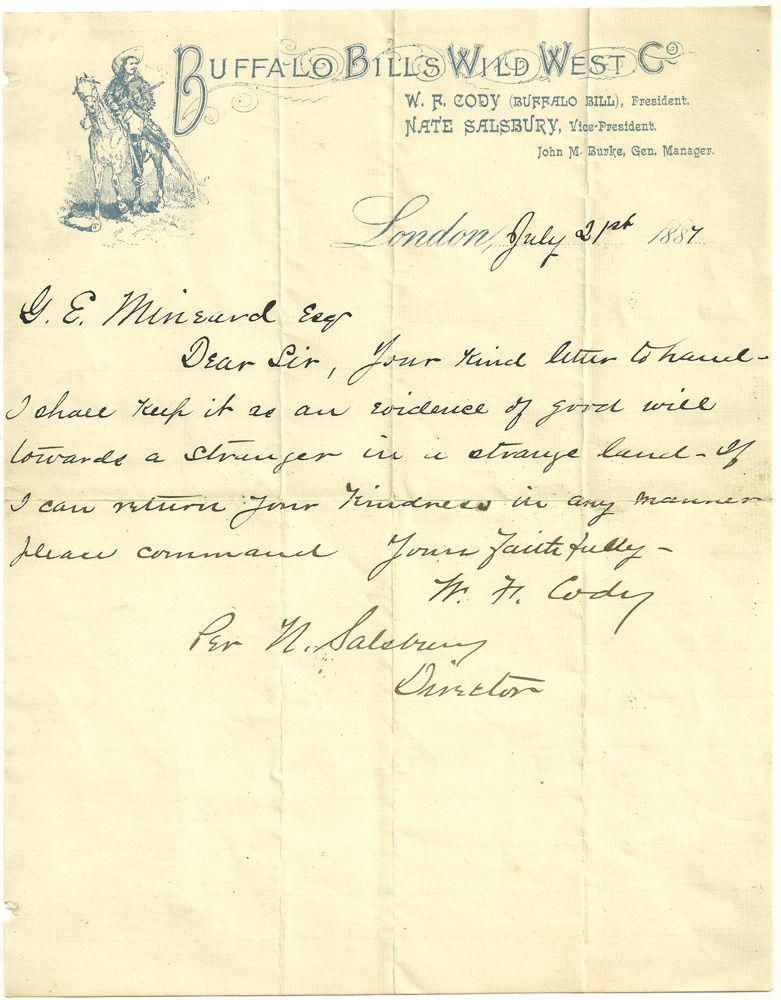 BUFFALO BILLS WILD WEST Co
W. F. CODY (BUFFALO BILL), President.
NATE SALSBURY, Vice-President.
John M. Burke, Gen. Manager.
London, July 21st 1887
G. E. Mineard Esq
Dear Sir, Your Kind letter to hand-
I shall Keep it as an evidence of good will
towards a stranger in a strange land - If
I can return your Kindness in any manner
please command Yours faithfully -
W. F. Cody
Per N. Salsbury
Director